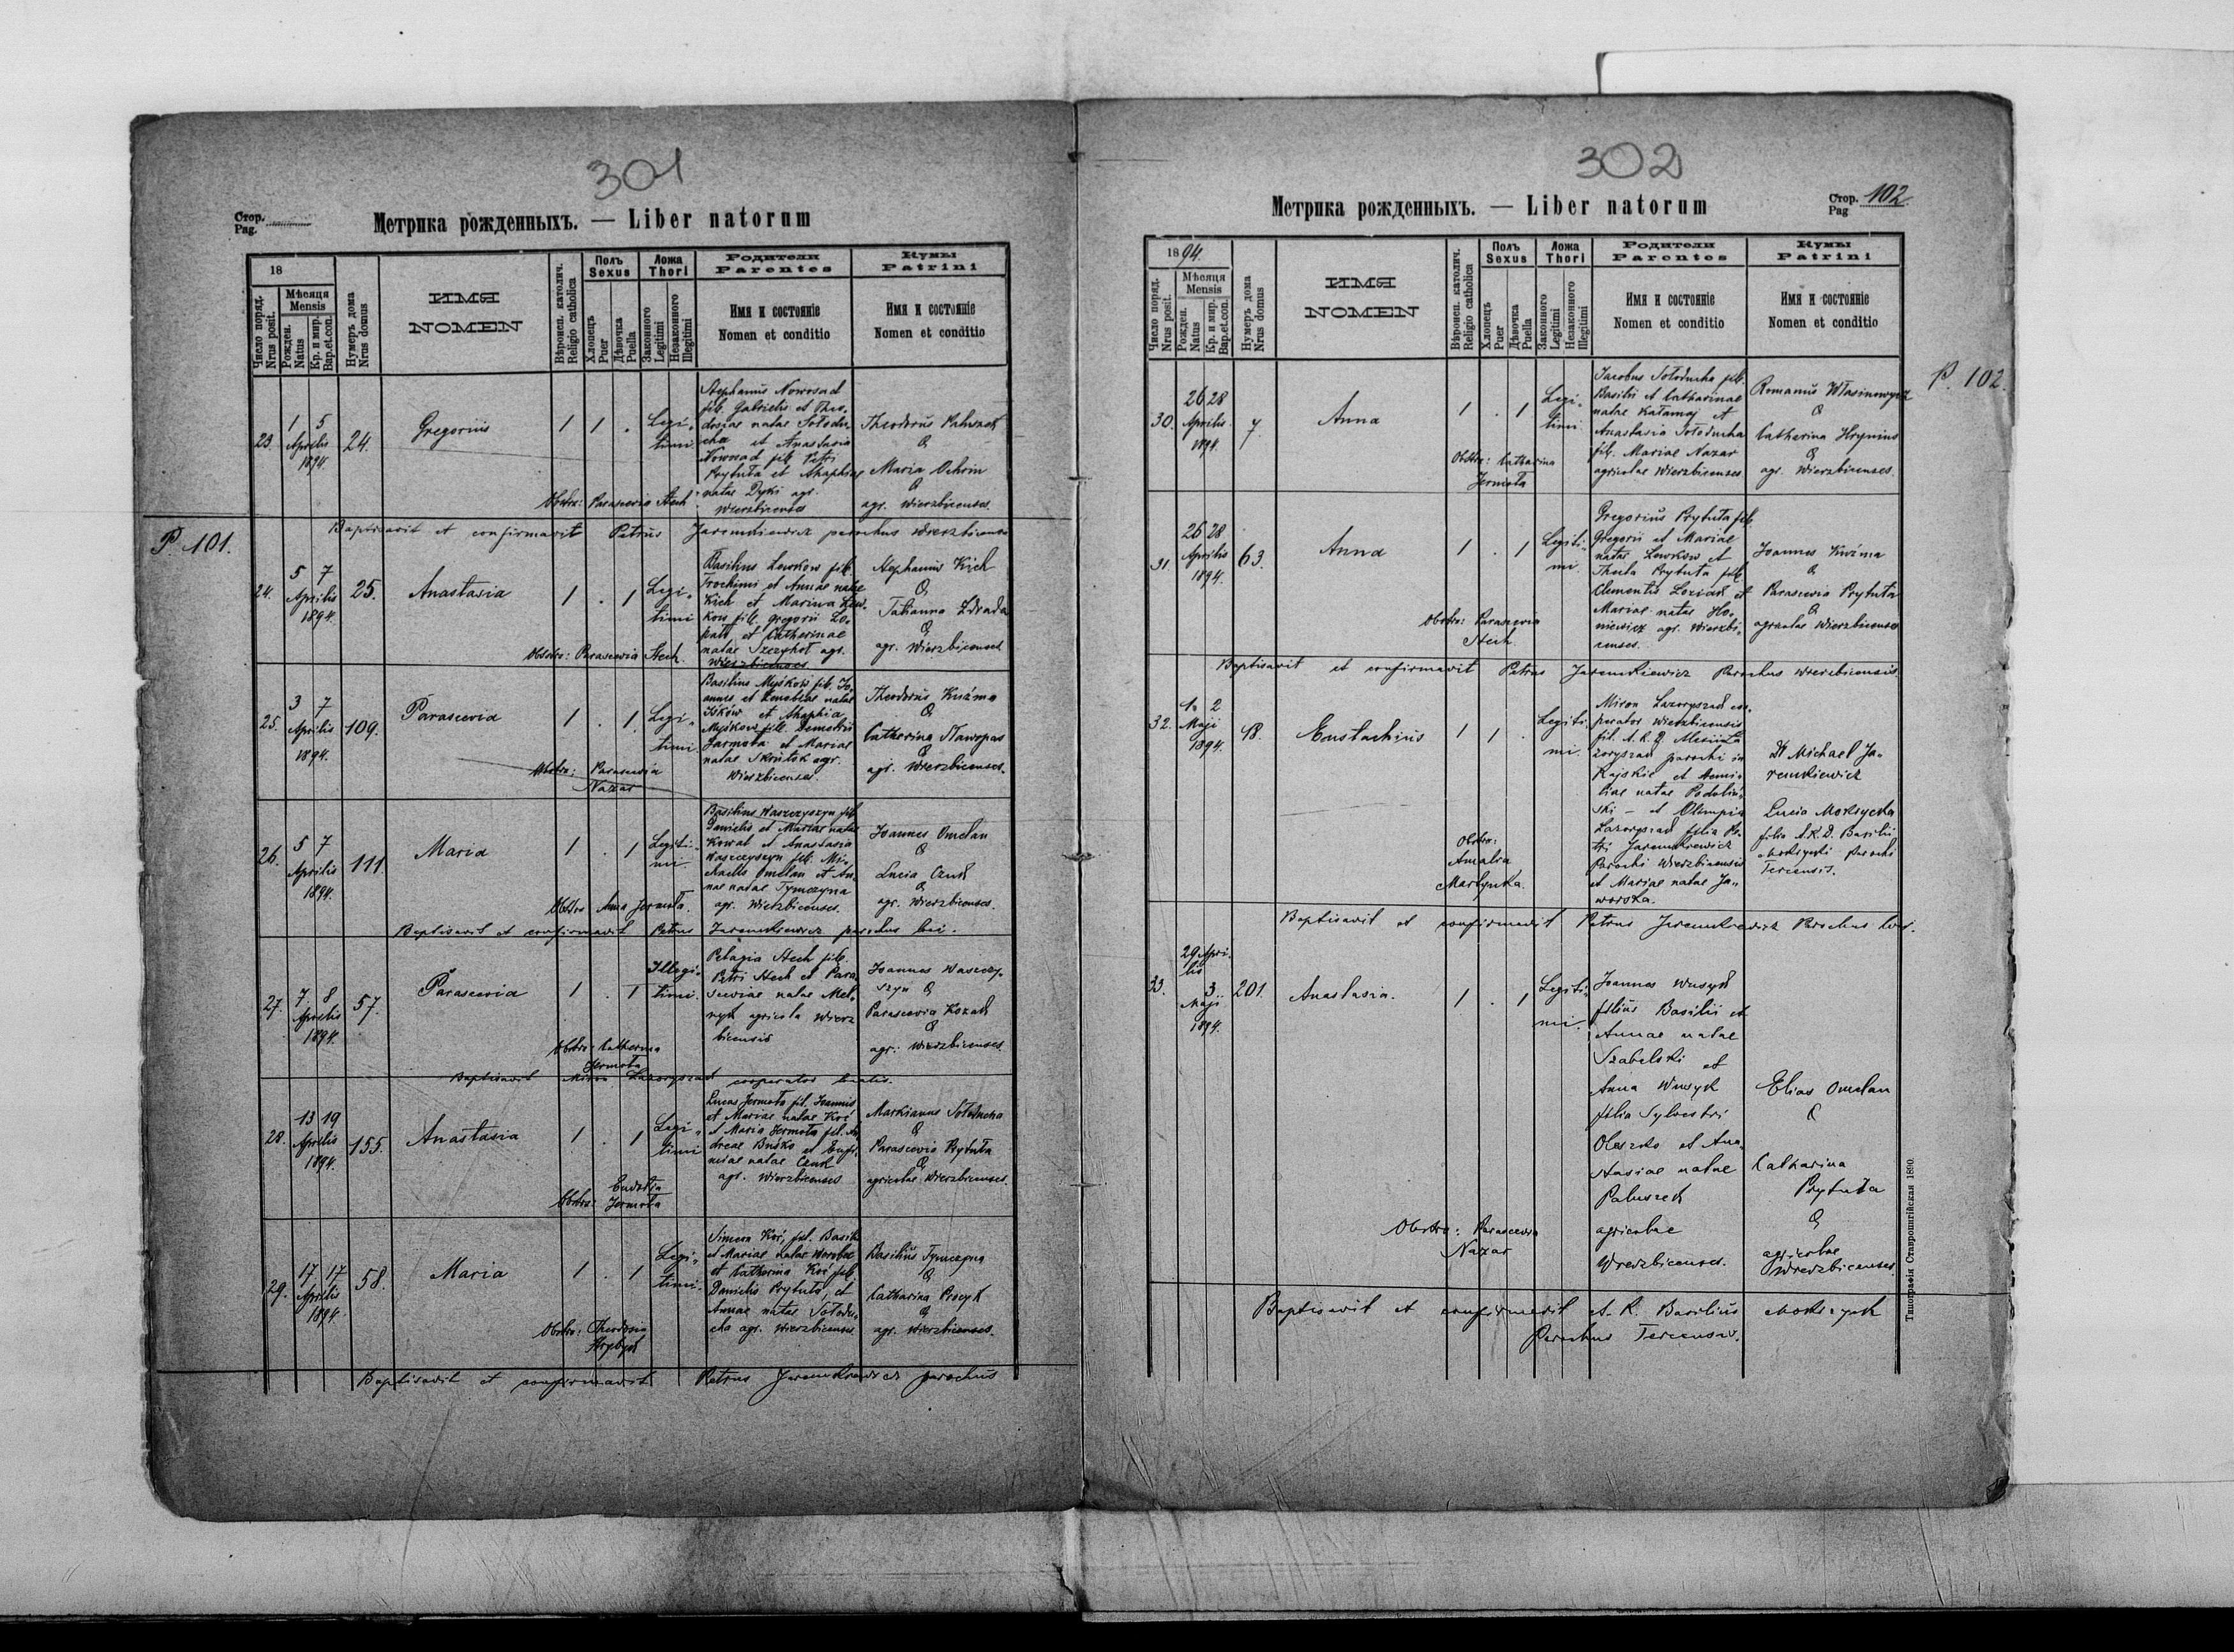 301
Стор.
Pag.
Метрика рожденныхъ. — Liber natorum
18
Число поряд.
Nrus posit.
Мѣсяця
Mensis
Рожден.
Natus
Кр. и мир.
Bap.et.con.
Нумеръ дома
Nrus domus
ИМЯ
NOMEN
Вѣроисп. католич.
Religio catholica
Полъ
Sexus
Хлопецъ
Puer
Дѣвочка
Puella
Ложа
Thori
Законного
Legitimi
Незаконного
Illegitimi
Родители
Parentes
Имя и состоянiе
Nomen et conditio
Кумы
Patrini
Имя и состоянiе
Nomen et conditio
23.
1 5
Aprilis
1894.
24.
Gregorius
1 1 .
Legi-
timi
Stephanus Nowosad
fil. Gabrielis et Theo-
dosiae natae Sołodu-
cha et Anastasia
Nowosad fil. Petri
Prytuła et Ahaphiae
natae Dyki agr.
Wierzbicenses
Theodorus Paluszek
&
Maria Ochrin
&
agr. Wierzbicenses.
Obstro: Parascevia Stech
Baptisavit et confirmavit Petrus Jaremkiewicz parochus Wierzbicensis
P. 101.
24.
5 7
Aprilis
1894.
25.
Anastasia
1 . 1
Legi-
timi
Basilius Lewkow fil.
Trochimi et Annae natae
Kich et Marina Lew-
kow fil. Gregorii Ło-
pato et Catherinae
natae Szczyhoł agr.
Wierzbicenses
Stephanus Kich
&
Tatianna Zdrada
&
agr. Wierzbicenses
Obstro: Parascevia Stech.
25.
3 7
Aprilis
1894.
109.
Parascevia
1 . 1
Legi-
timi.
Basilius Myśkow fil. Jo-
annes et natae
Iśków et Ahaphia
Myśkow fil. Demetrii
Jarmoła et Mariae
natae agr.
Wierzbicenses.
Theodorus Kuźma
&
Catherina
&
agr. Wierzbicenses.
Obstro: Parascevia
Nazar
26.
5 7
Aprilis
1894.
111.
Maria
1 . 1
Legiti-
mi.
Basilius Waszczyszyn fil.
Danielis et Mariae natae
Kowal et Anastasia
Waszczyszyn fil. Mi-
chaelis Omelan et An-
nae natae Tymczyna
agr. Wierzbicenses.
Joannes Omelan
&
Lucia Czuk
&
agr. Wierzbicenses.
Obstro Anna Jermoła.
Baptisavit et confirmavit Petrus Jaremkiewicz parochus loci.
27.
7 8
Aprilis
1894.
57.
Parascevia
1 . 1
Illegi-
timi.
Pelagia Stech fil.
Petri Stech et Para-
sceviae natae Mel-
nyk agricola Wierz
bicensis
Joannes Waszczy-
szyn &
Parascevia Kozak
&
agr. Wierzbicenses.
Obstro: Catherina
Jermoła
Baptisavit Miron Łazoryszak cooperator localis.
28.
13 19
Aprilis
1894.
155.
Anastasia
1 . 1
Legi-
timi
Lucas Jermoła fil. Joannis
et Mariae natae Koć
et Maria Jermoła fil. An-
dreae Buśko et Eufe-
miae natae Czuk
agr. Wierzbicenses
Markianus Sołoducha
&
Parascevia Prytuła
&
agricolae Wierzbicenses.
Obstro: Eudokia
Jermoła
29.
17 17
Aprilis
1894.
58.
Maria
1 . 1
Legi-
timi.
Simeon Koć, fil. Basilii
et Mariae natae Worobec
et Catherina Koć fil.
Danielis Prytuła, et
Annae natae Sołodu-
cha agr. Wierzbicenses
Basilius Tymczyna
&
Catharina Procyk
&
agr. Wierzbicenses.
Obstro: Theodosia
Baptisavit et confirmavit Petrus Jaremkiewicz parochus
302
Метрика рожденныхъ. — Liber natorum
Стор. 102.
Pag
1894.
Число поряд.
Nrus posit.
Мѣсяця
Mensis
Рожден.
Natus
Кр. и мир.
Bap.et.con.
Нумеръ дома
Nrus domus
ИМЯ
NOMEN
Вѣроисп. католич.
Religio catholica
Полъ
Sexus
Хлопецъ
Puer
Дѣвочка
Puella
Ложа
Thori
Законного
Legitimi
Незаконного
Illegitimi
Родители
Parentes
Имя и состоянiе
Nomen et conditio
Кумы
Patrini
Имя и состоянiе
Nomen et conditio
P. 102.
30.
26 28
Aprilis
1894.
7.
Anna
1 . 1
Legi-
timi.
Jacobus Sołoducha fil.
Basilii et Catharinae
natae Kałamaj et
Anastasia Sołoducha
fil. Mariae Nazar
agricolae Wierzbicenses
Romanus Własinowycz
&
Catherina Hrynius
&
agr. Wierzbicenses.
Obstro: Catharina
Jermoła
31.
26 28
Aprilis
1894.
63.
Anna
1 . 1
Legiti-
mi.
Gregorius Prytuła fil.
Gregorii et Mariae
natae Lewkow et
Thecla Prytuła fil.
Clementis Łoziak et
Mariae natae Ho-
niewicz agr. Wierzbi-
censes.
Joannes Kuźma
&
Parascevia Prytuła
&
agricolae Wierzbicenses
Obstro: Parascevia
Stech
Baptisavit et confirmavit Petrus Jaremkiewicz Parochus Wierzbicensis.
32.
1. 2
Maji
1894.
18.
Eustachius
1 1 .
Legiti-
mi.
Miron Łazoryszak coo-
perator Wierzbicensis
fil. A. R. D. Alexii Ła
zoryszak parochi in
Rajskie et Aemi-
liae natae Podoliń-
ski — et Olimpia
Łazoryszak filia Pe-
tri Jaremkiewicz
Parochi Wierzbicensis
et Mariae natae Ja-
worska.
D. Michael Ja-
remkiewicz
Lucia Mokrycka
filia A. R. D. Basilii
Mokrycki parochi
Terensis.
Obstro:
Amalia
Martynka.
Baptisavit et confirmavit Petrus Jaremkiewicz Parochus loci.
33.
29 Apri-
lis
3.
Maji
1894.
201.
Anastasia.
1 . 1
Legiti-
mi.
Joannes Wusyk
filius Basilii et
Annae natae
Szabelski et
Anna Wusyk
filia Sylvestri
Oleszko et Ana-
stasiae natae
Paluszek
agricolae
Wierzbicenses.
Elias Omelan
&
Catharina
Prytuła
&
agricolae
Wierzbicenses.
Obstro: Parascevia
Nazar
Baptisavit et confirmavit A. R. Basilius Mokrycki
Parochus Tercensis.
Типографія Ставропигійская 1890.